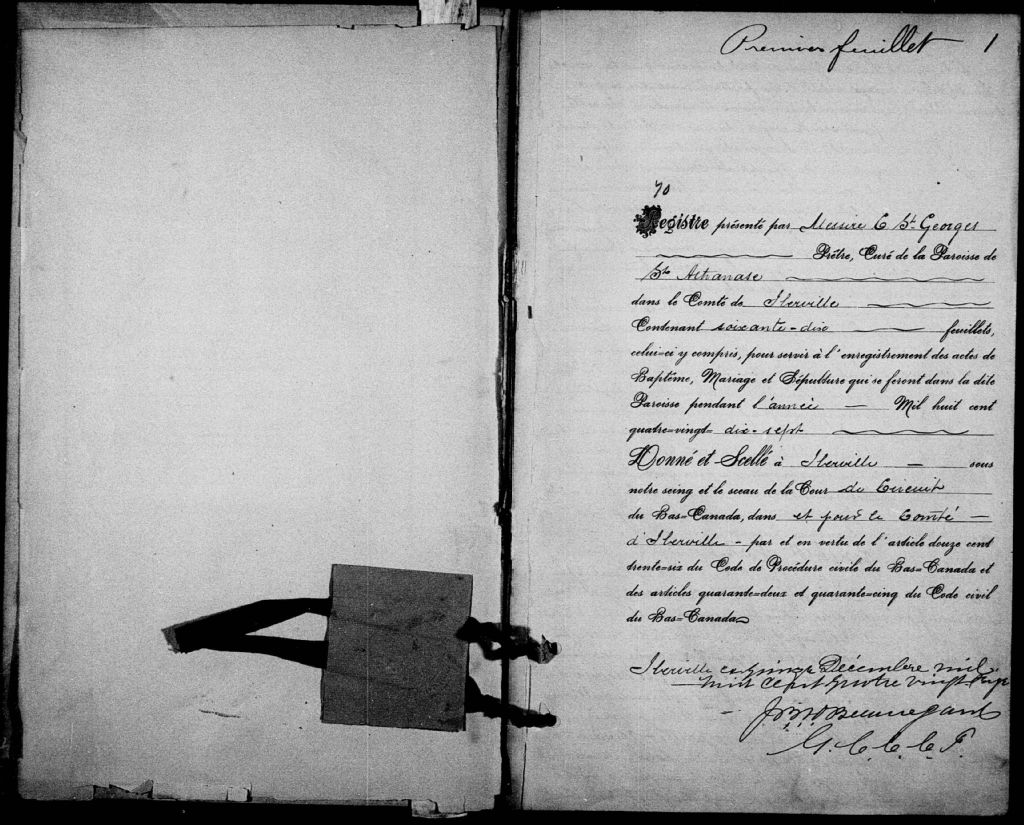 Premier feuillet 1
70
Registre présenté par Messire C St. Georges
Prêtre, Curé de la Paroisse de
St. Athanase
dans le Comté de Iberville
Contenant soixante-dix feuillets,
celui-ci y compris, pour servir à l'enregistrement des actes de
Baptême, Mariage et Sépulture qui se feront dans la dite
Paroisse pendant l'année — Mil huit cent
quatre-vingt- dix-sept
Donné et Scellé à Iberville — sous
notre seing et le sceau de la Cour de Circuit
du Bas-Canada, dans et pour le Comté —
d'Iberville - par et en vertu de l'article douze cent
trente-six du Code de Procédure civile du Bas-Canada et
des articles quarante-deux et quarante-cinq du Code civil
du Bas-Canada
Iberville ce quinze Décembre mil
huit cent quatre vingt seize
Beauregard
G. C. C. C. I.